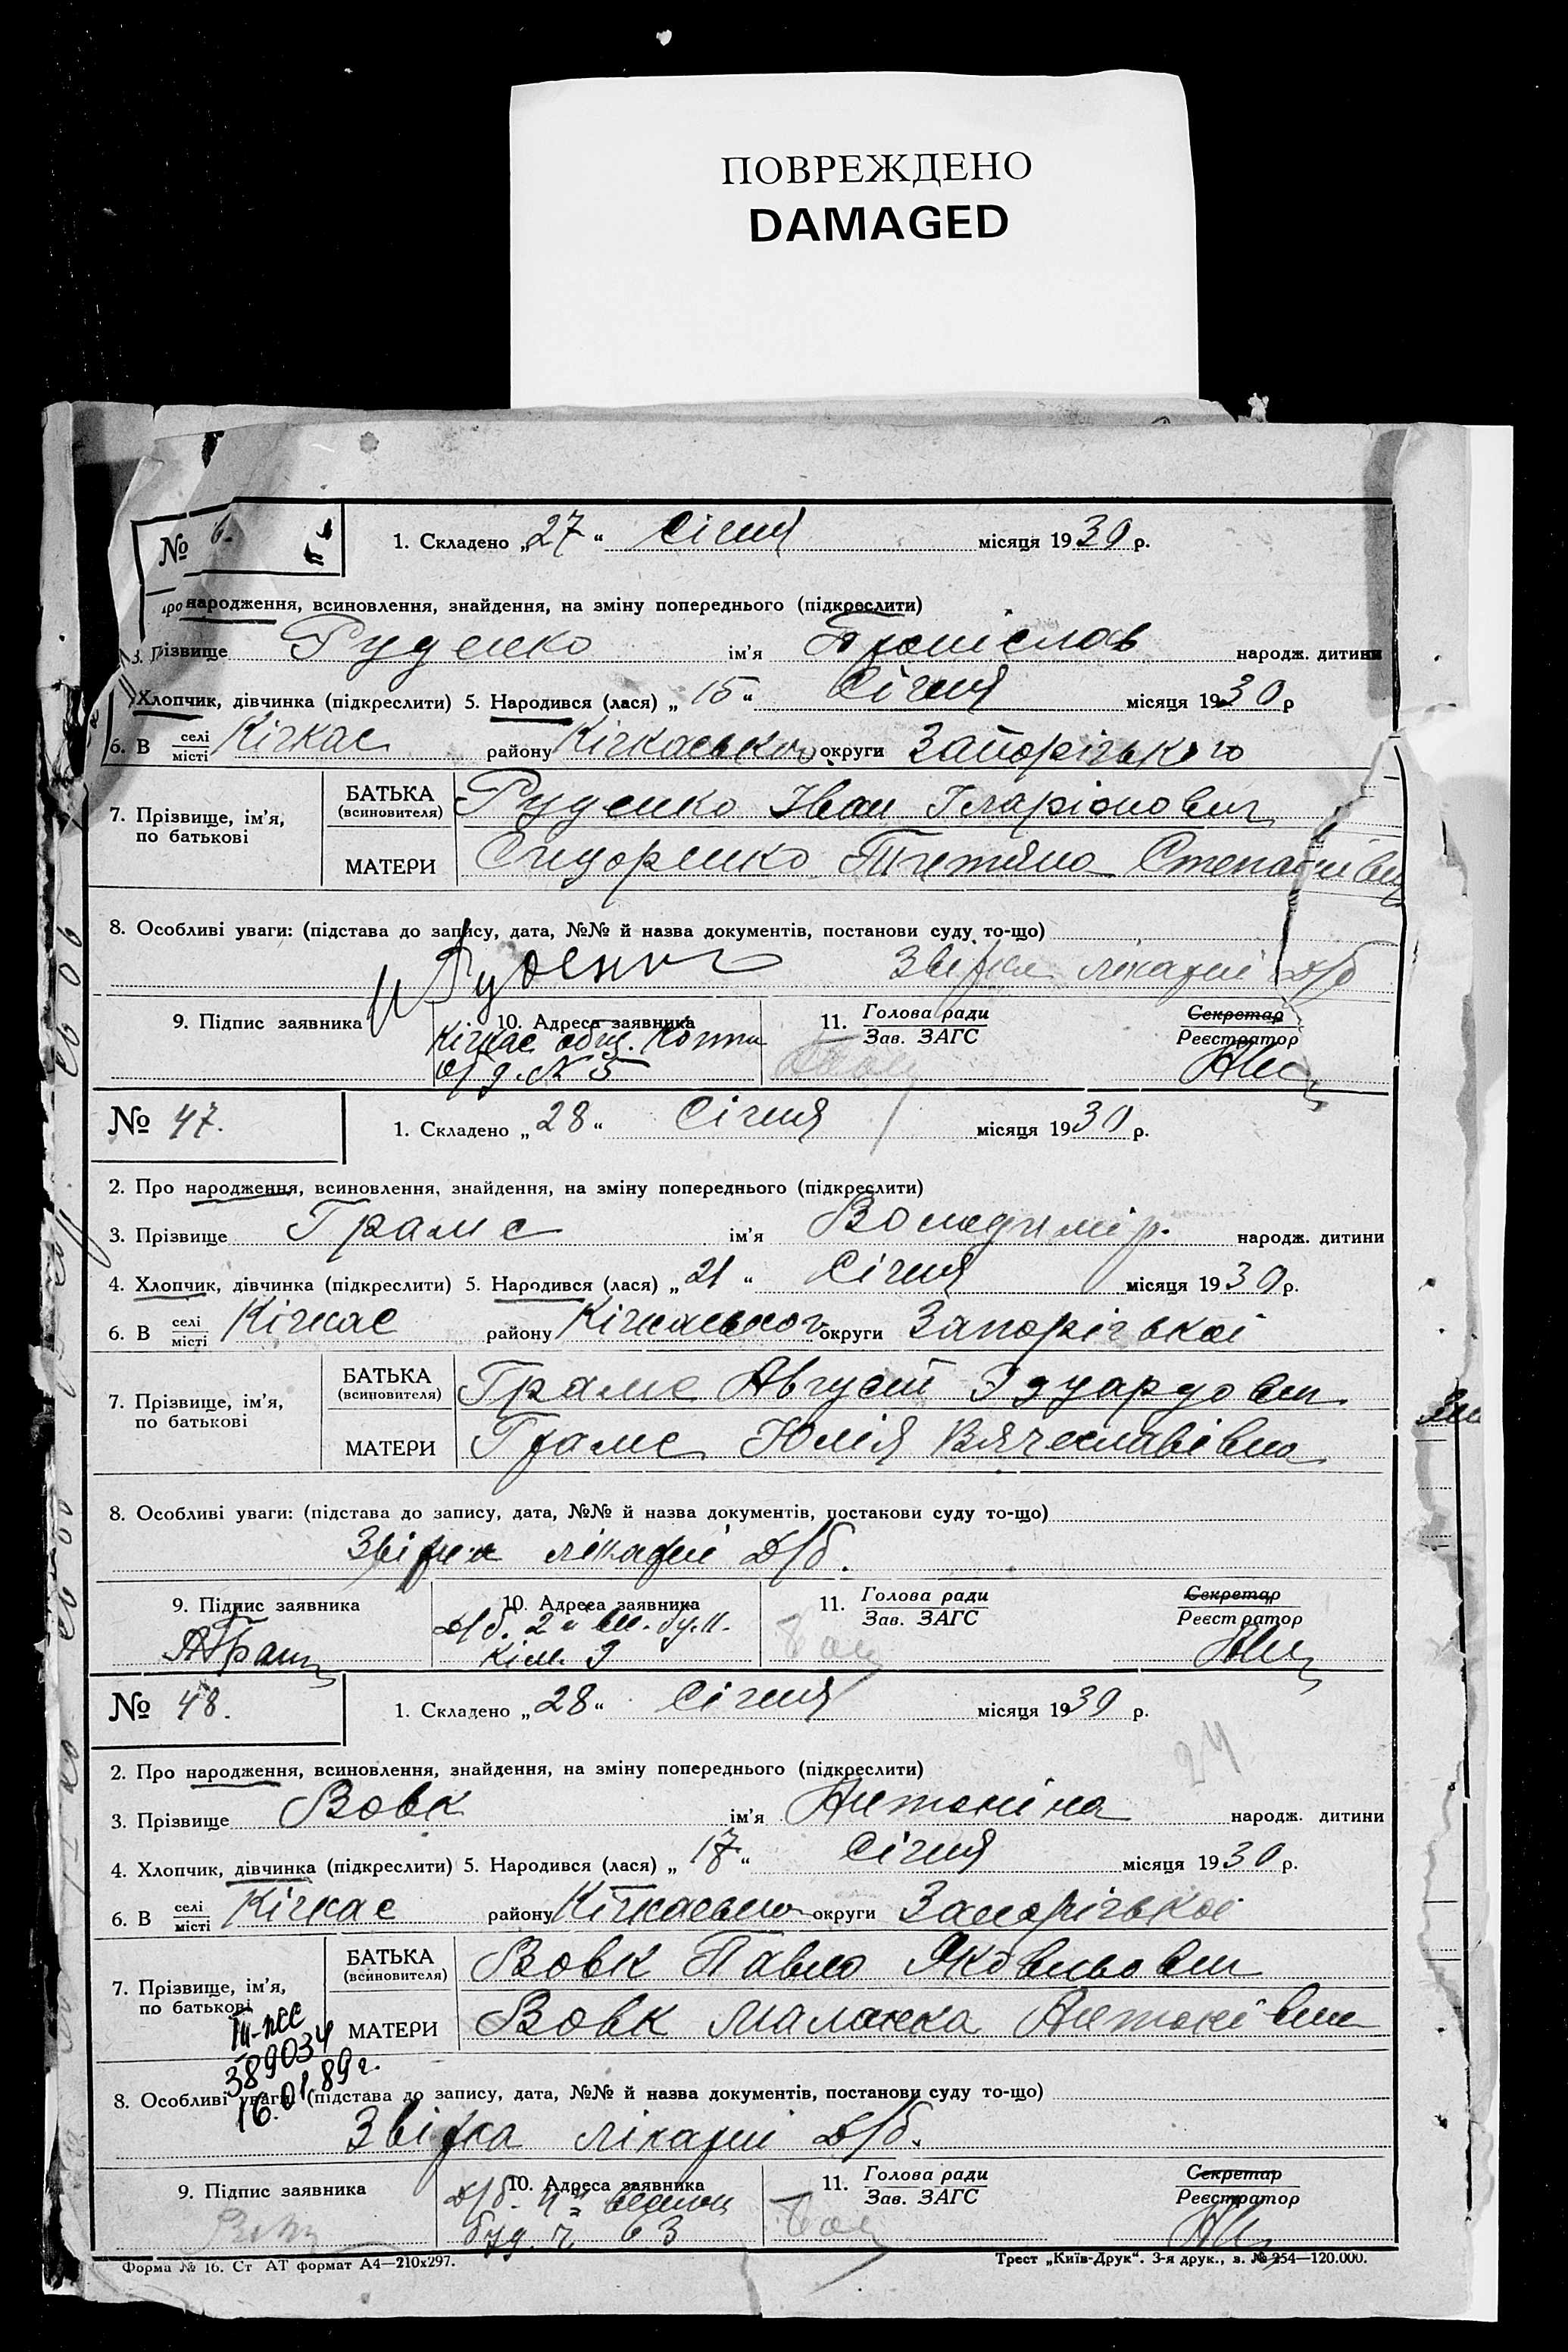 ПОВРЕЖДЕНО
DAMAGED
№ 6.
1. Складено „27“ Січня місяця 1930 р.
про народження, всиновлення, знайдення, на зміну попереднього (підкреслити)
3. Прізвище Руденко ім’я Броніслав народж. дитини
Хлопчик, дівчинка (підкреслити) 5. Народився (лася) „15“ Січня місяця 1930 р
6. В селі місті Кічкас району Кічкаського округи Запорізького
7. Прізвище, ім’я, по батькові
БАТЬКА (всиновителя) Руденко Іван Іларіонович
МАТЕРИ Сидоренко Тетяна Степанівна
8. Особливі уваги: (підстава до запису, дата, №№ й назва документів, постанови суду то-що)
Руденко лікарні Д/б
9. Підпис заявника 10. Адреса заявника 11. Голова ради Зав. ЗАГС Секретар Реєстратор
Кічкас
№ 5
№ 47.
1. Складено „28“ Січня місяця 1930 р.
2. Про народження, всиновлення, знайдення, на зміну попереднього (підкреслити)
3. Прізвище Грамс ім’я Володимір. народж. дитини
4. Хлопчик, дівчинка (підкреслити) 5. Народився (лася) „21“ Січня місяця 1930 р.
6. В селі місті Кічкас району Кічкаського округи Запорізької
7. Прізвище, ім’я, по батькові
БАТЬКА (всиновителя) Грамс Август Эдуардович
МАТЕРИ Грамс Юлія Вячеславівна
8. Особливі уваги: (підстава до запису, дата, №№ й назва документів, постакови суду то-що)
лікарні Д/б.
9. Підпис заявника 10. Адреса заявника 11. Голова ради Зав. ЗАГС Секретар Реєстратор
Д/б. 2
Кім. 9
№ 48.
1. Складено „28“ Січня місяця 1930 р.
24
2. Про народження, всиновлення, знайдення, на зміну попереднього (підкреслити)
3. Прізвище Вовк ім’я Антоніна народж. дитини
4. Хлопчик, дівчинка (підкреслити) 5. Народився (лася) „17“ Січня місяця 1930 р.
6. В селі місті Кічкас району Кічкаського округи Запорізької
7. Прізвище, ім’я, по батькові
БАТЬКА (всиновителя) Вовк Павло Яковльович
МАТЕРИ Вовк Маланка Антонівна
389034
16.01.89 г.
8. Особливі уваги: (підстава до запису, дата, №№ й назва документів, постанови суду то-що)
лікарні Д/б.
9. Підпис заявника 10. Адреса заявника 11. Голова ради Зав. ЗАГС Секретар Реєстратор
Д/б.
буд. 63
Форма № 16. Ст АТ формат А4—210х297.
Трест „Київ-Друк“. 3-я друк., в. № 254—120.000.